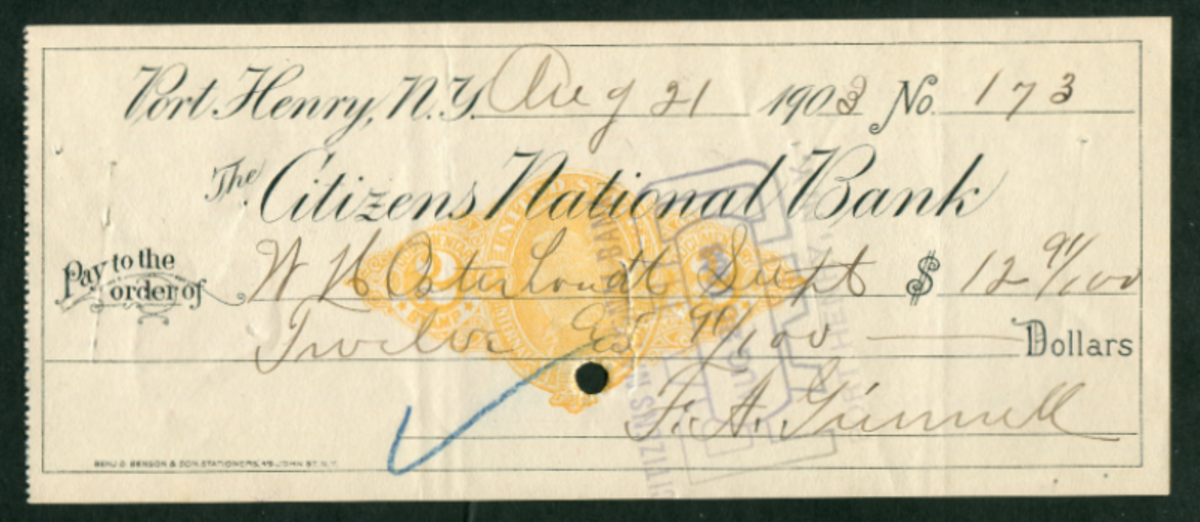 Port Henry, N.Y. Aug 21 1903 No. 173
The Citizens National Bank
Pay to the order of W H Osterhoudt Supt $ 12 91/100
Twelve 91/100 Dollars
F. A.
BENJ. D. BENSON & SON, STATIONERS, 49 JOHN ST. N.Y.